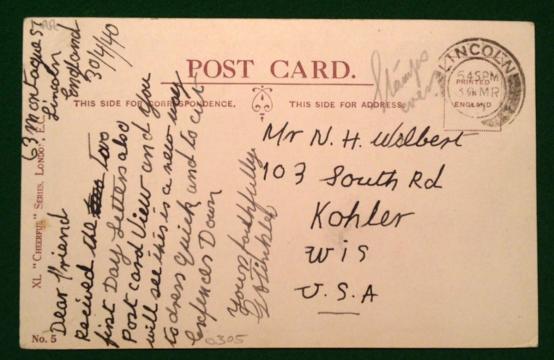 POST CARD.
THIS SIDE FOR CORRESPONDENCE.
THIS SIDE FOR ADDRESS.
63 Montague St
Lincoln
England
30/4/40
Dear Friend
Recieved the two
first Day Letters also
Post card View and you
will see this is a new way
to dress quick and to cut
Down
Yours faithfully
Stamps
over
LINCOLN
5 45 PM
PRINTED
IN
ENGLAND
Mr N. H. Welbert
103 South Rd
Kohler
Wis
U.S.A
XL "CHEERFUL" SERIES, LONDON, E.
No. 5
0305